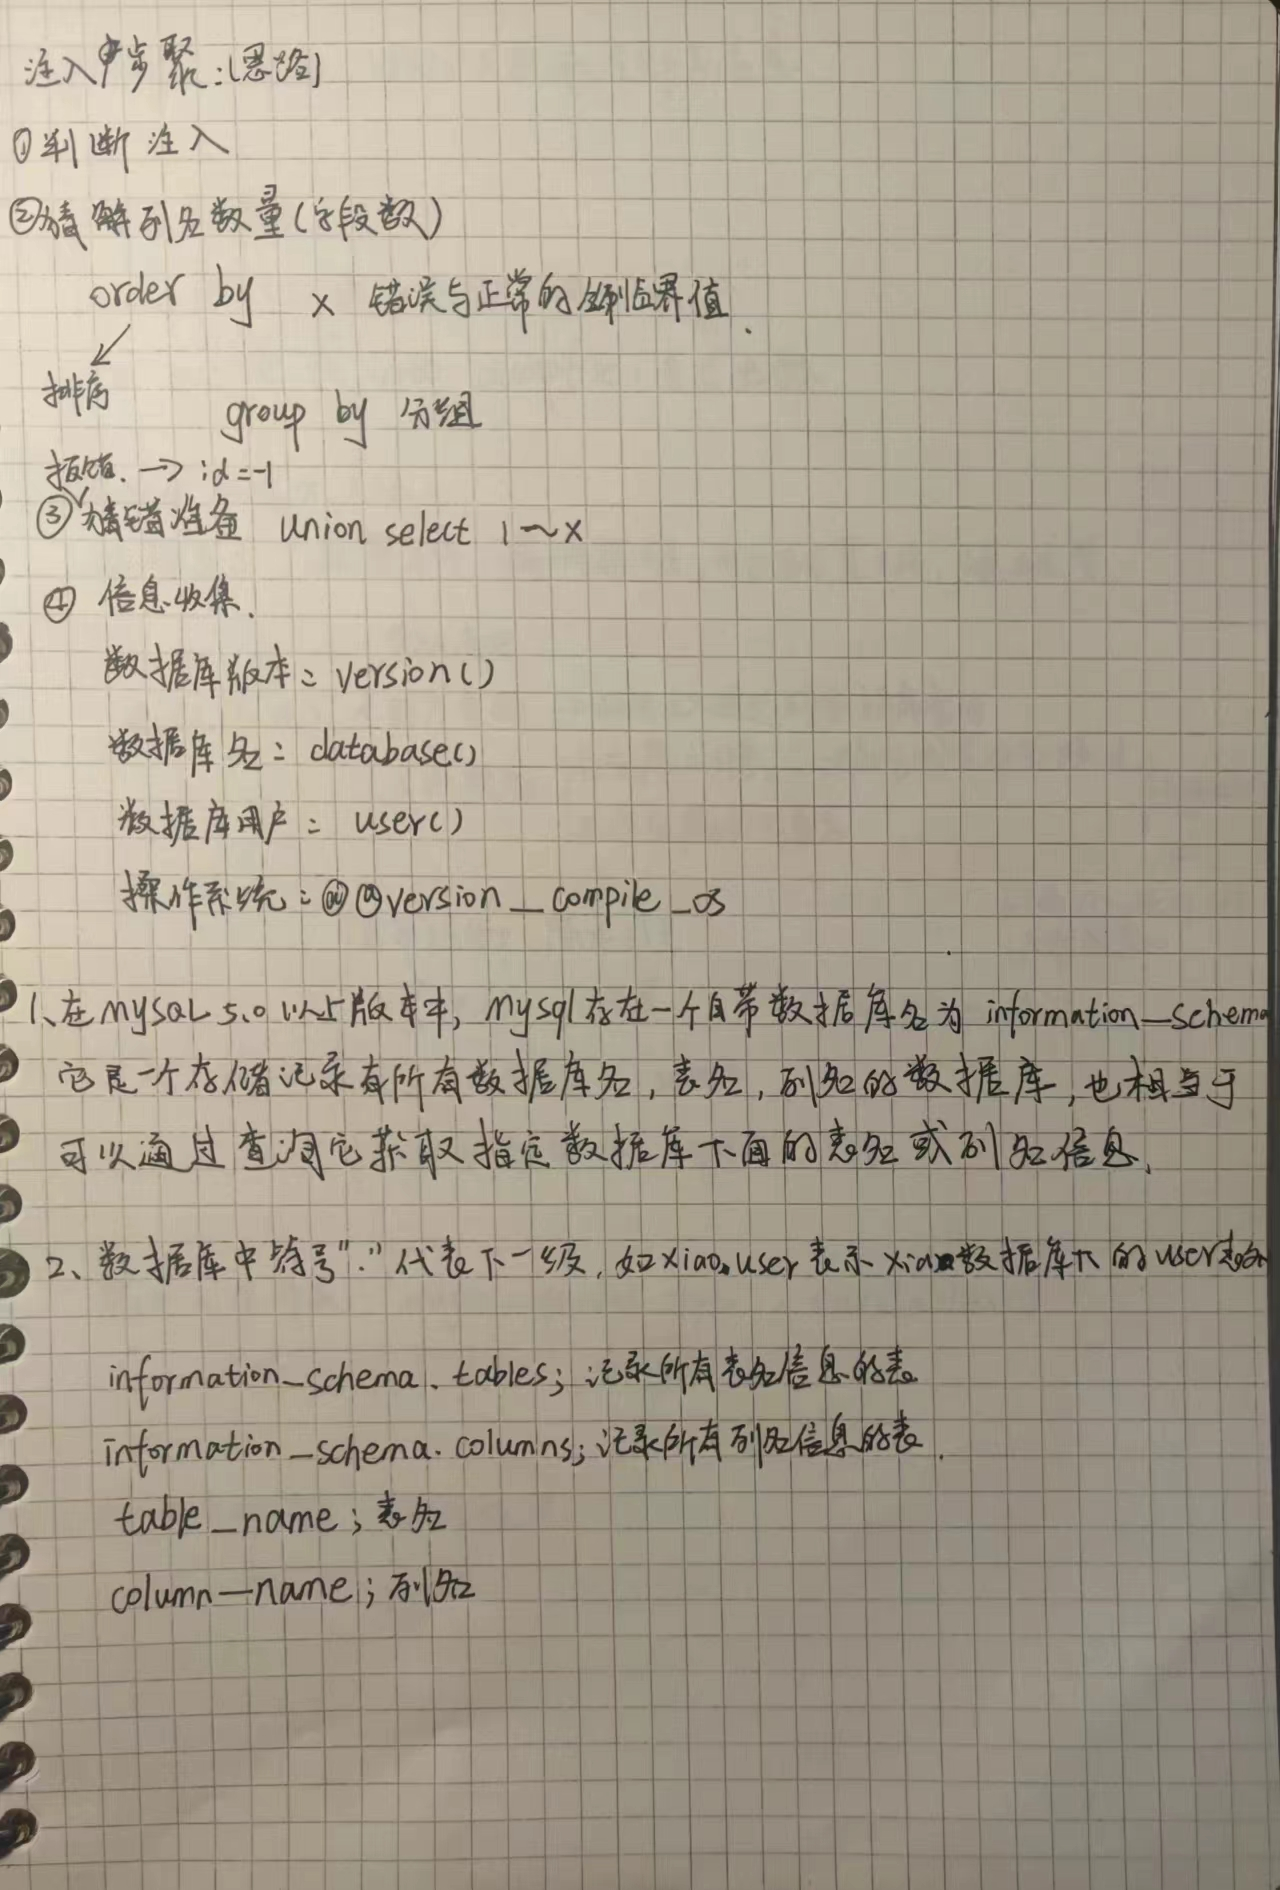 注入步骤:(思路)
①判断注入
②猜解列名数量(字段数)
order by x 错误与正常的临界值.
排序
group by 分组
报错. → id=-1
③猜错准备 union select 1~x
④ 信息收集.
数据库版本: version()
数据库名: database()
数据库用户: user()
操作系统: @@version_compile_os
1、在MySQL 5.0以上版本中, mysql存在一个自带数据库名为information_schema
它是一个存储记录有所有数据库名,表名,列名的数据库,也相当于
可以通过查询它获取指定数据库下面的表名或列名信息.
2、数据库中符号"."代表下一级,如xiao.user表示xiao数据库下的user表名
information_schema.tables; 记录所有表名信息的表
information_schema.columns; 记录所有列名信息的表.
table_name; 表名
column_name; 列名